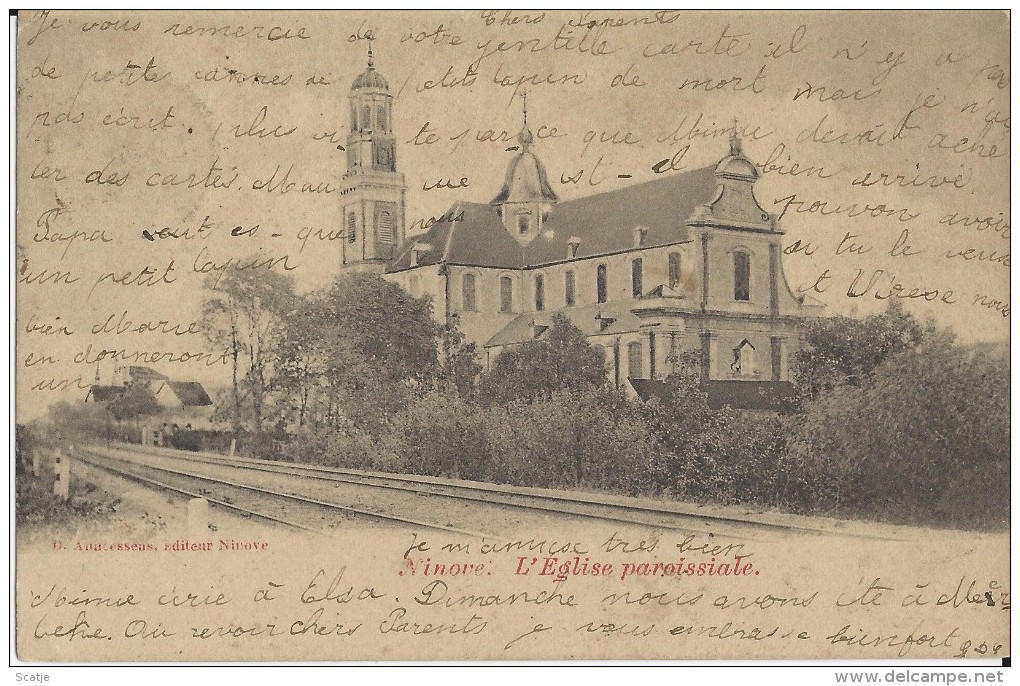 Chers Parents
Je vous remercie de votre gentille carte il n'y a
de petite cannes de petits lapin de mort mais je n'ai
pas écrit. plus vite parce que Mimie devait ache
ter des cartes. Mau que est-il bien arrivé
Papa veut es-que nous pouvon avoir
un petit lapin si tu le veus
bien Marie et Virese nous
en donneront
un
D. Anneessens, éditeur Ninove
Je m'amuse tres bien
Ninove. L'Église paroissiale.
Mimie écrie à Elsa. Dimanche nous avons été à Meir
beke. Au revoir chers Parents je vous embrasse bienfort
© Delcampe.net
Scatje